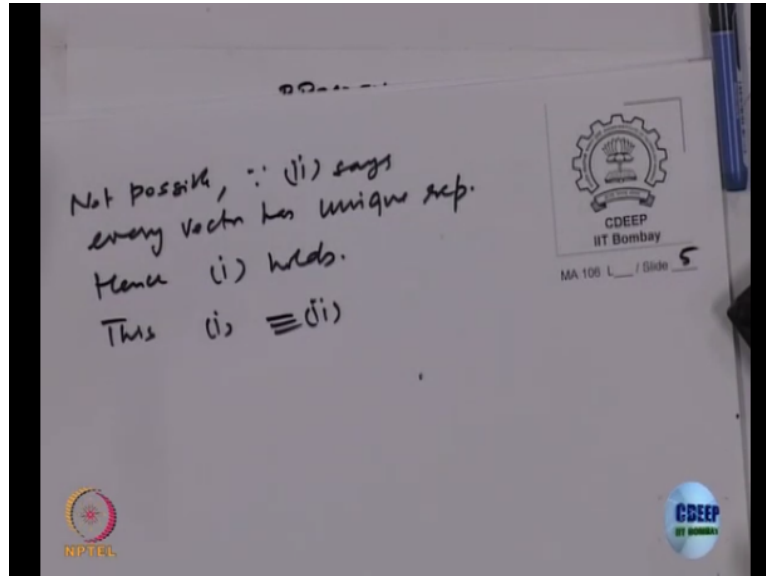 Not possible, ∵ (ii) says
every vector has unique rep.
Hence (i) holds.
This (i) ≡ (ii)
CDEEP
IIT Bombay
MA 106 L___ / Slide 5
NPTEL
CDEEP
IIT BOMBAY